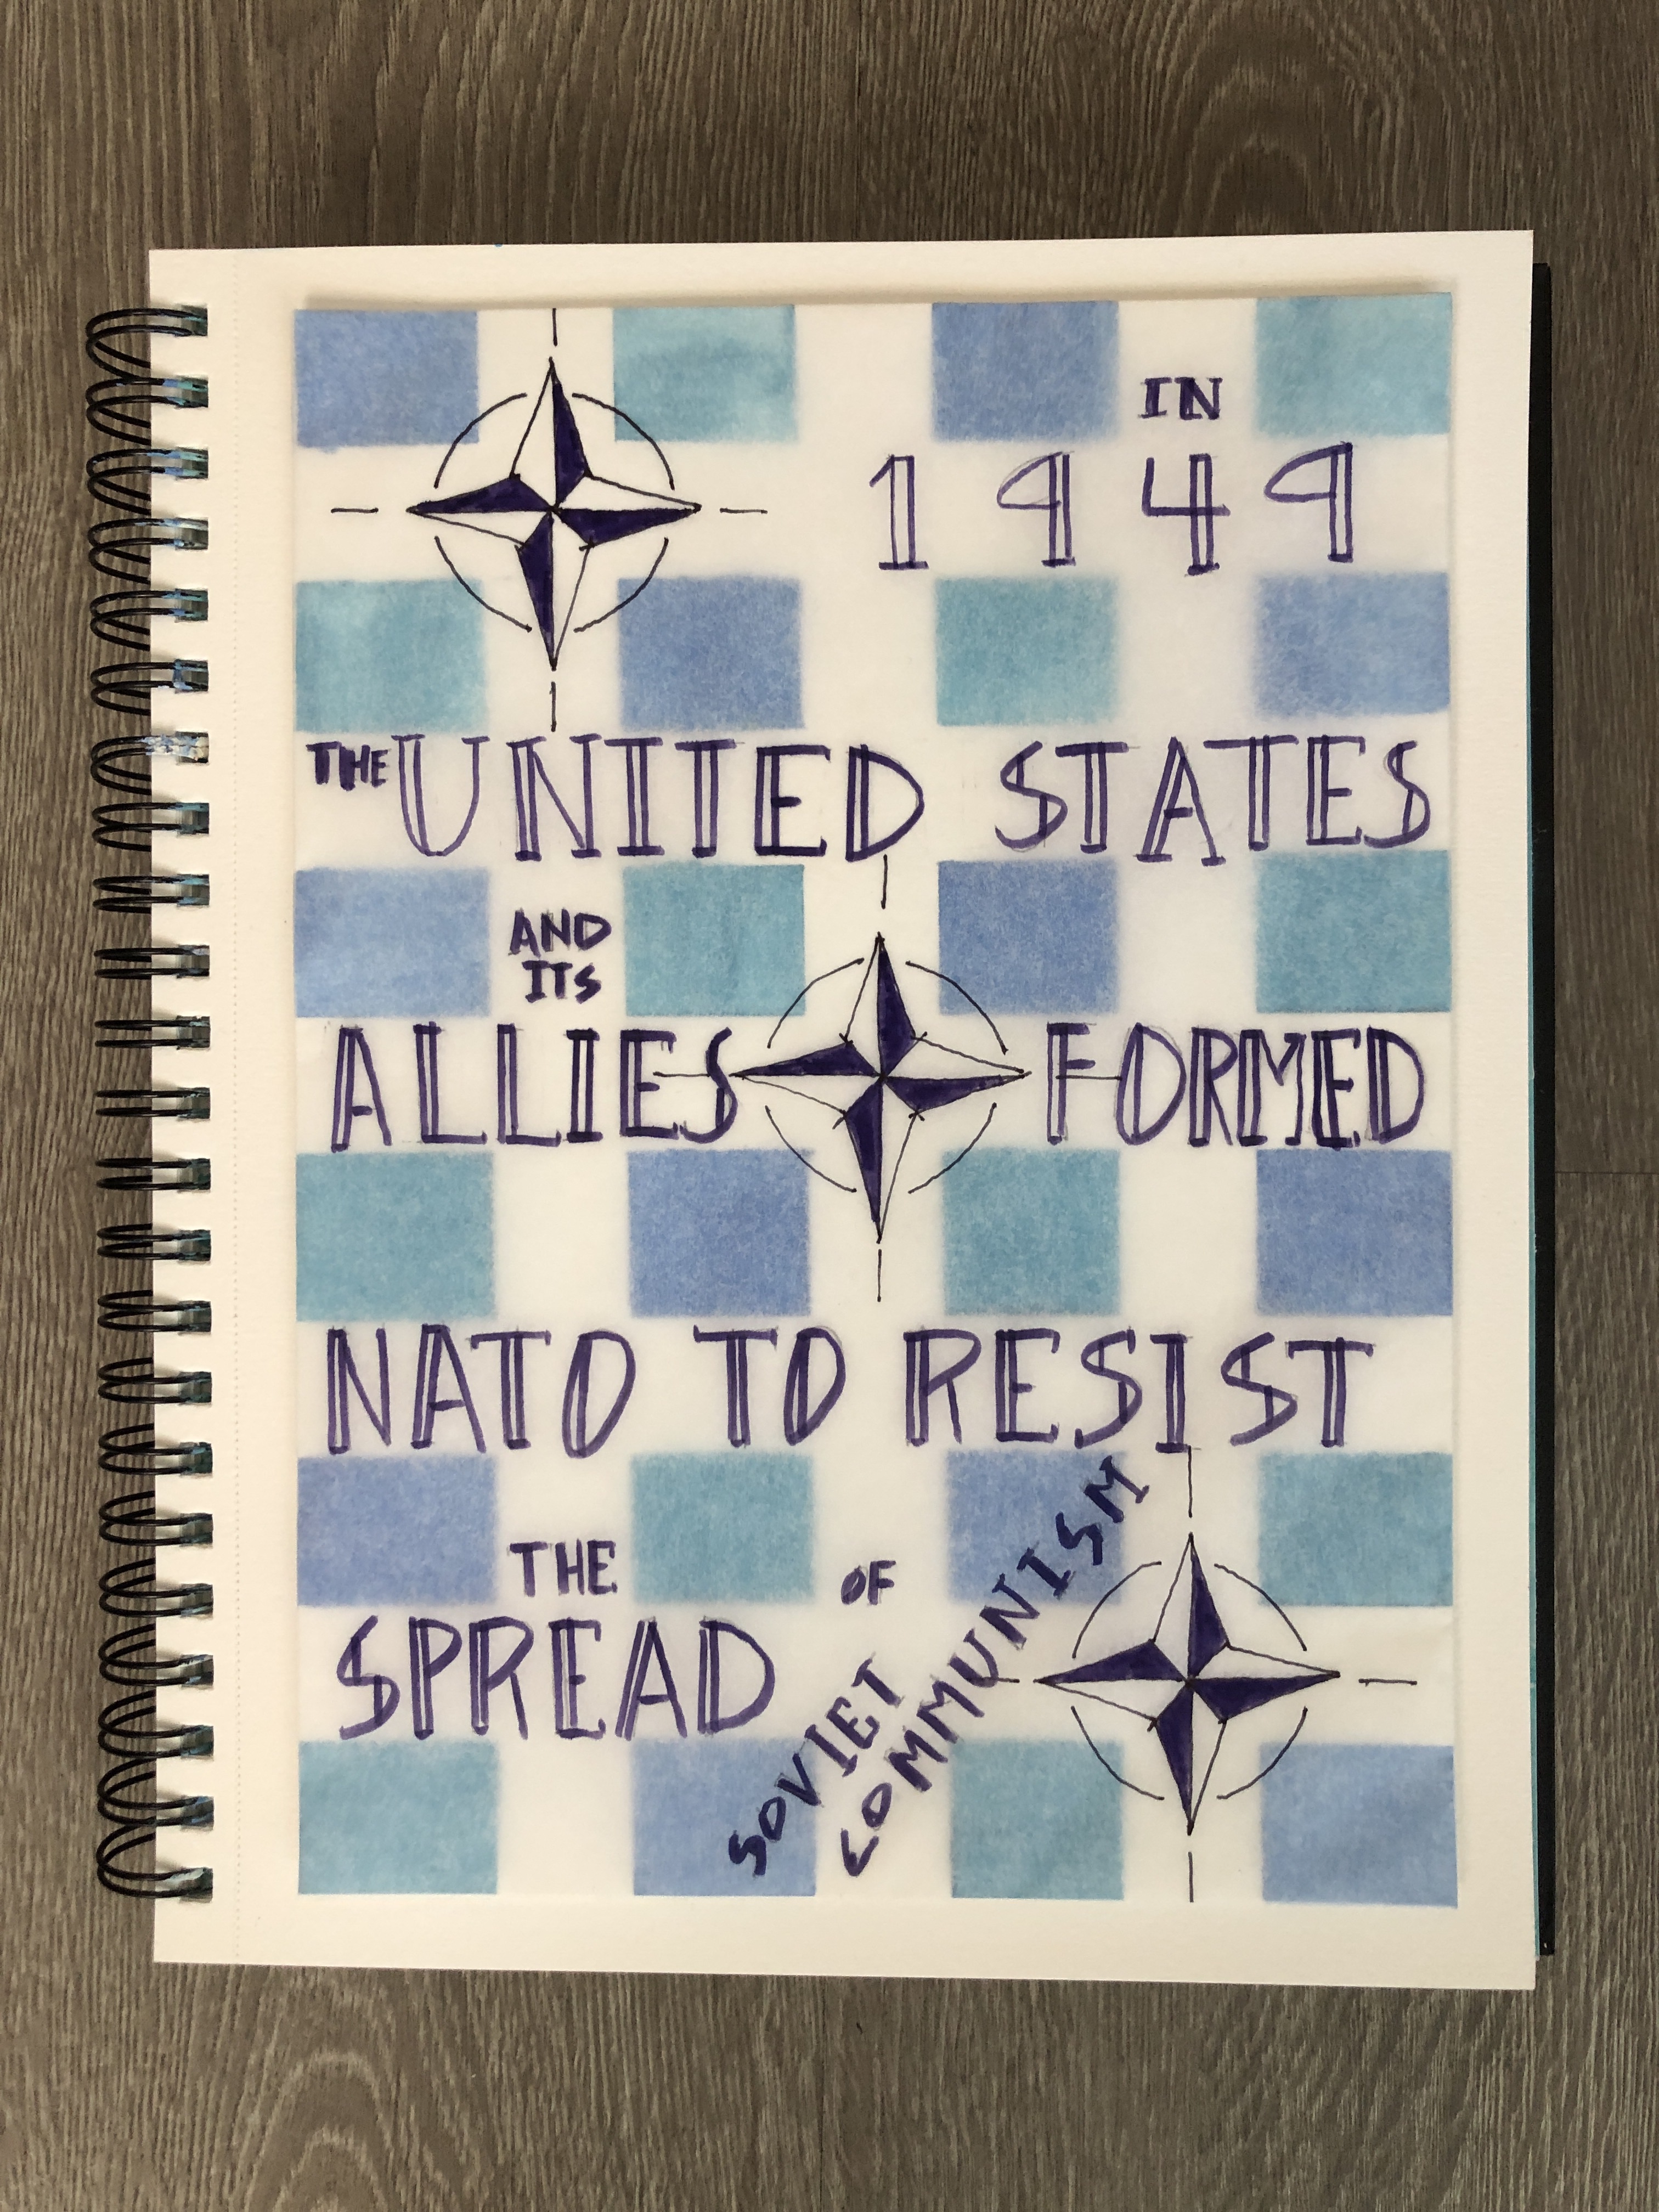 IN
1949
THE UNITED STATES
AND
ITS
ALLIES FORMED
NATO TO RESIST
THE
SPREAD
OF
SOVIET
COMMUNISM